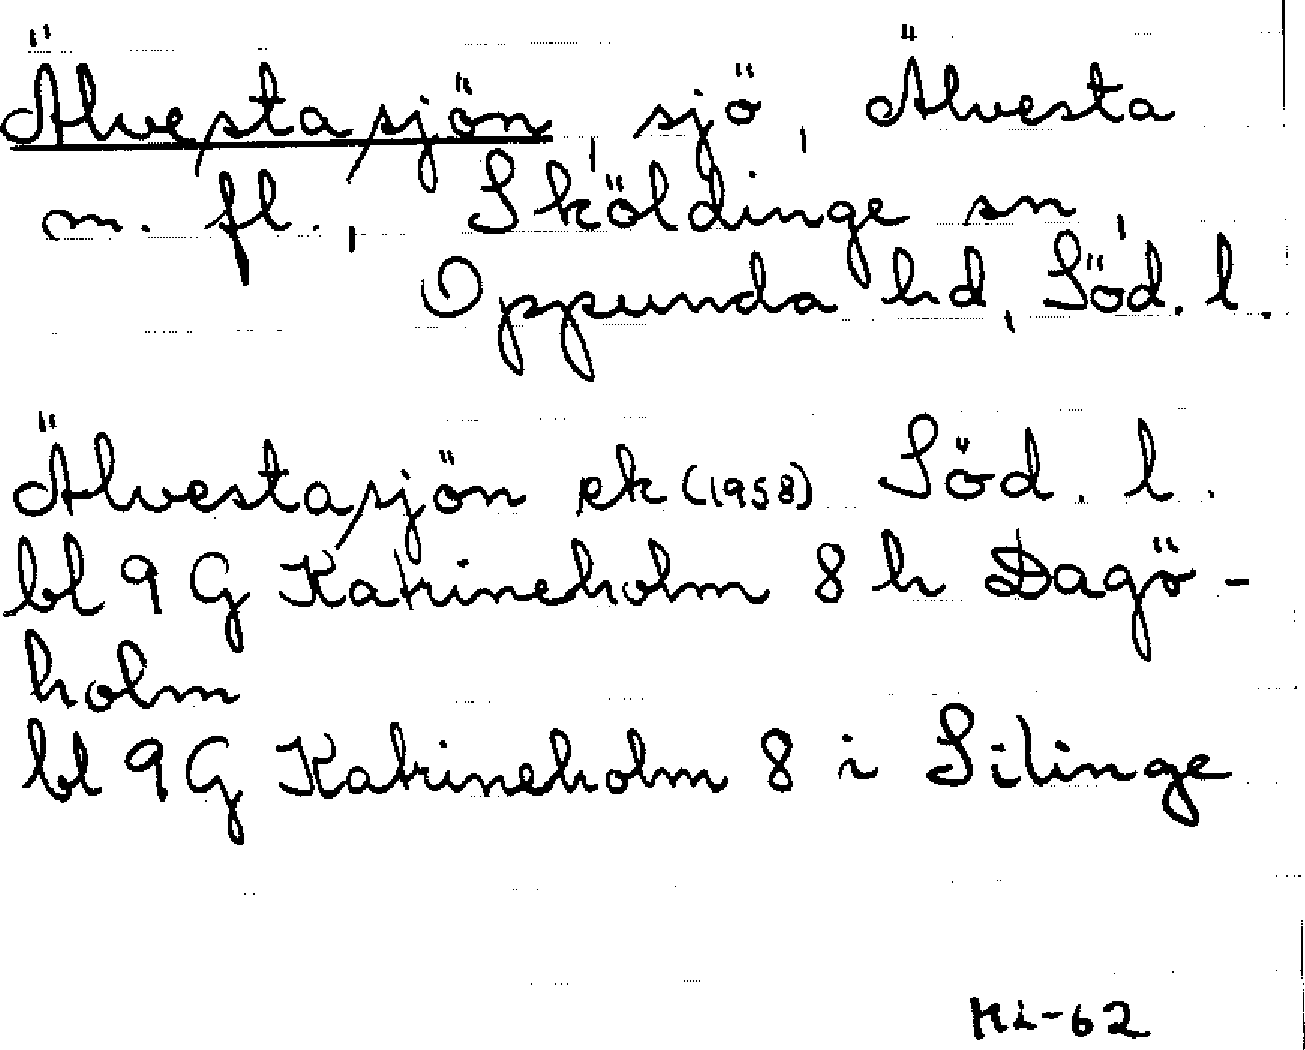 Älvestasjön, sjö, Älvesta
m. fl., Sköldinge sn,
Oppunda hd, Söd. l.
Älvestasjön ek (1958) Söd. l.
bl 9 G Katrineholm 8 h Dagö-
holm
bl 9 G Katrineholm 8 i Silinge
-62